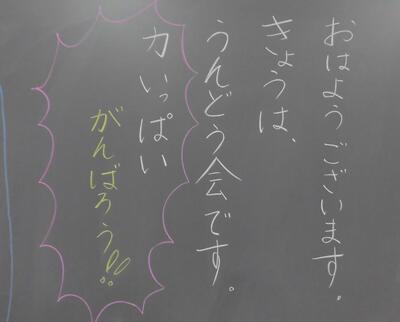 おはようございます。
きょうは、
うんどう会です。
力いっぱい
がんばろう!!